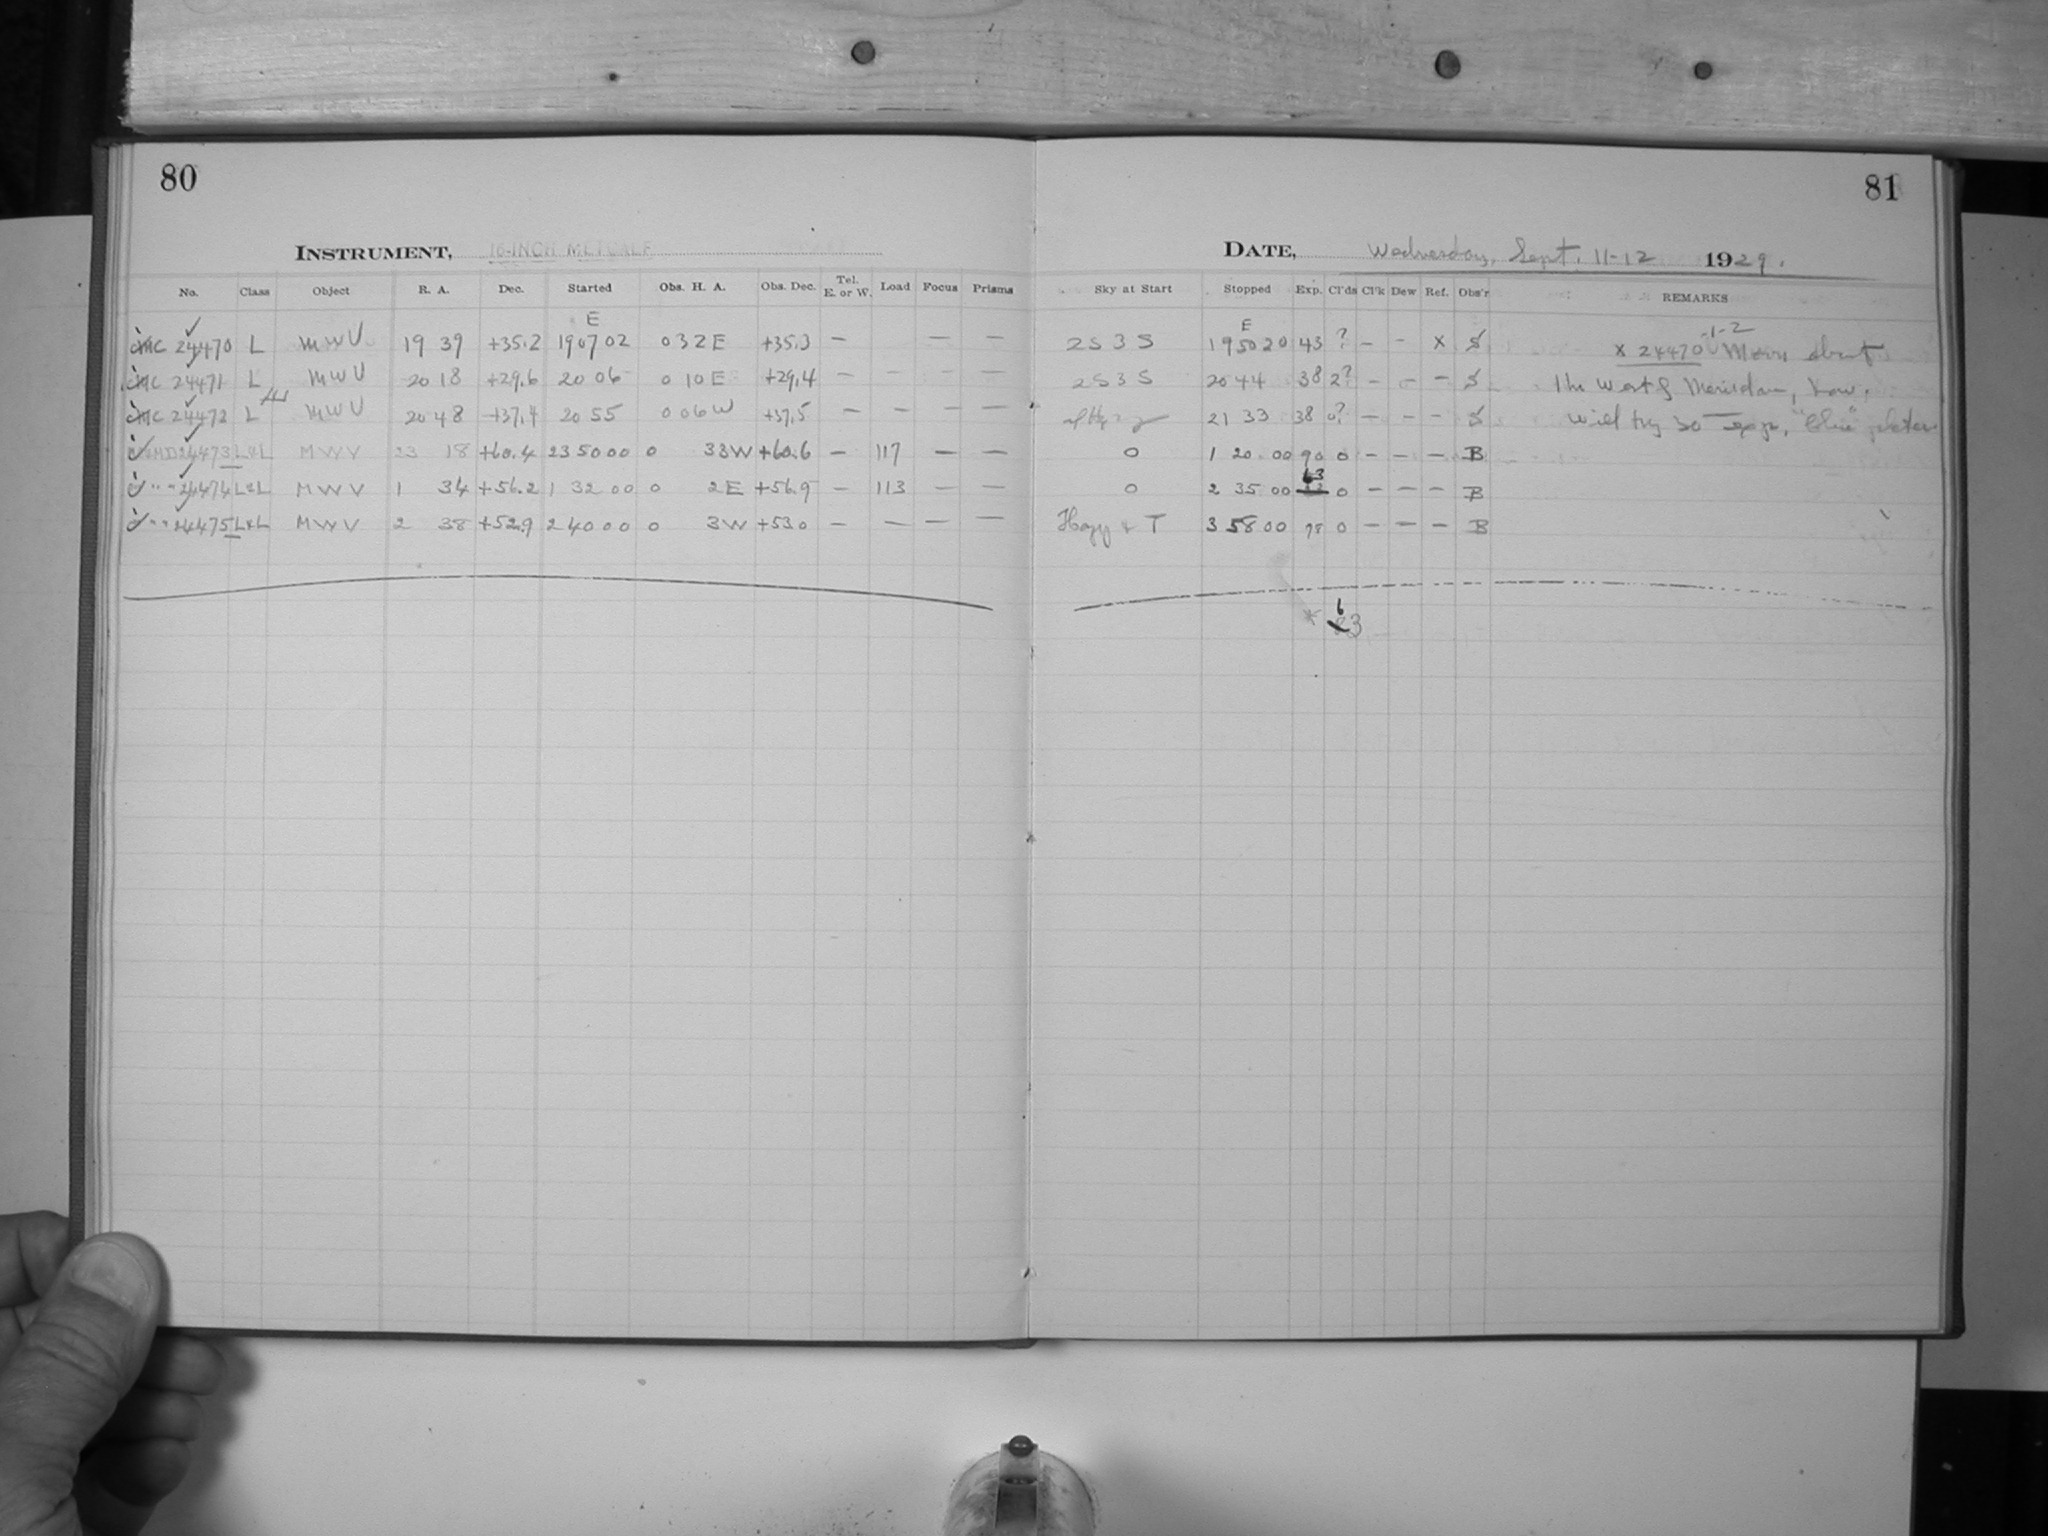 80
81
INSTRUMENT, 16-INCH METCALF
DATE, Wednesday, Sept. 11-12 1929.
No. Class Object R. A. Dec. Started Obs. H. A. Obs. Dec. Tel. E. or W. Load Focus Prisms Sky at Start Stopped Exp. Cl'ds Cl'k Dew Ref. Obs'r REMARKS
E E
MC 24470 L MWU 19 39 +35.2 19 07 02 0 32 E +35.3 — — — 2S3S 19 50 20 43 ? – – x S x 24470 -1-2 Moon about
MC 24471 L MWU 20 18 +29.6 20 06 0 10 E +29.4 — — — — 2S3S 20 44 38 2? – – – S 1 hr West of Meridian, now,
MC 24472 L MWU 20 48 +37.4 20 55 0 06 W +37.5 — — — — 21 33 38 0? – – – S will try 30 "blue" plates
MD 24473 L&L MWV 23 18 +60.4 23 50 00 0 33W +60.6 — 117 — — 0 1 20 00 90 0 – – – B
" " 24474 L&L MWV 1 34 +56.2 1 32 00 0 2E +56.9 — 113 — — 0 2 35 00 63 0 – – – B
" " 24475 L&L MWV 2 38 +52.9 2 40 00 0 3W +53.0 — — — — Hazy & T 3 58 00 78 0 – – – B
* 63